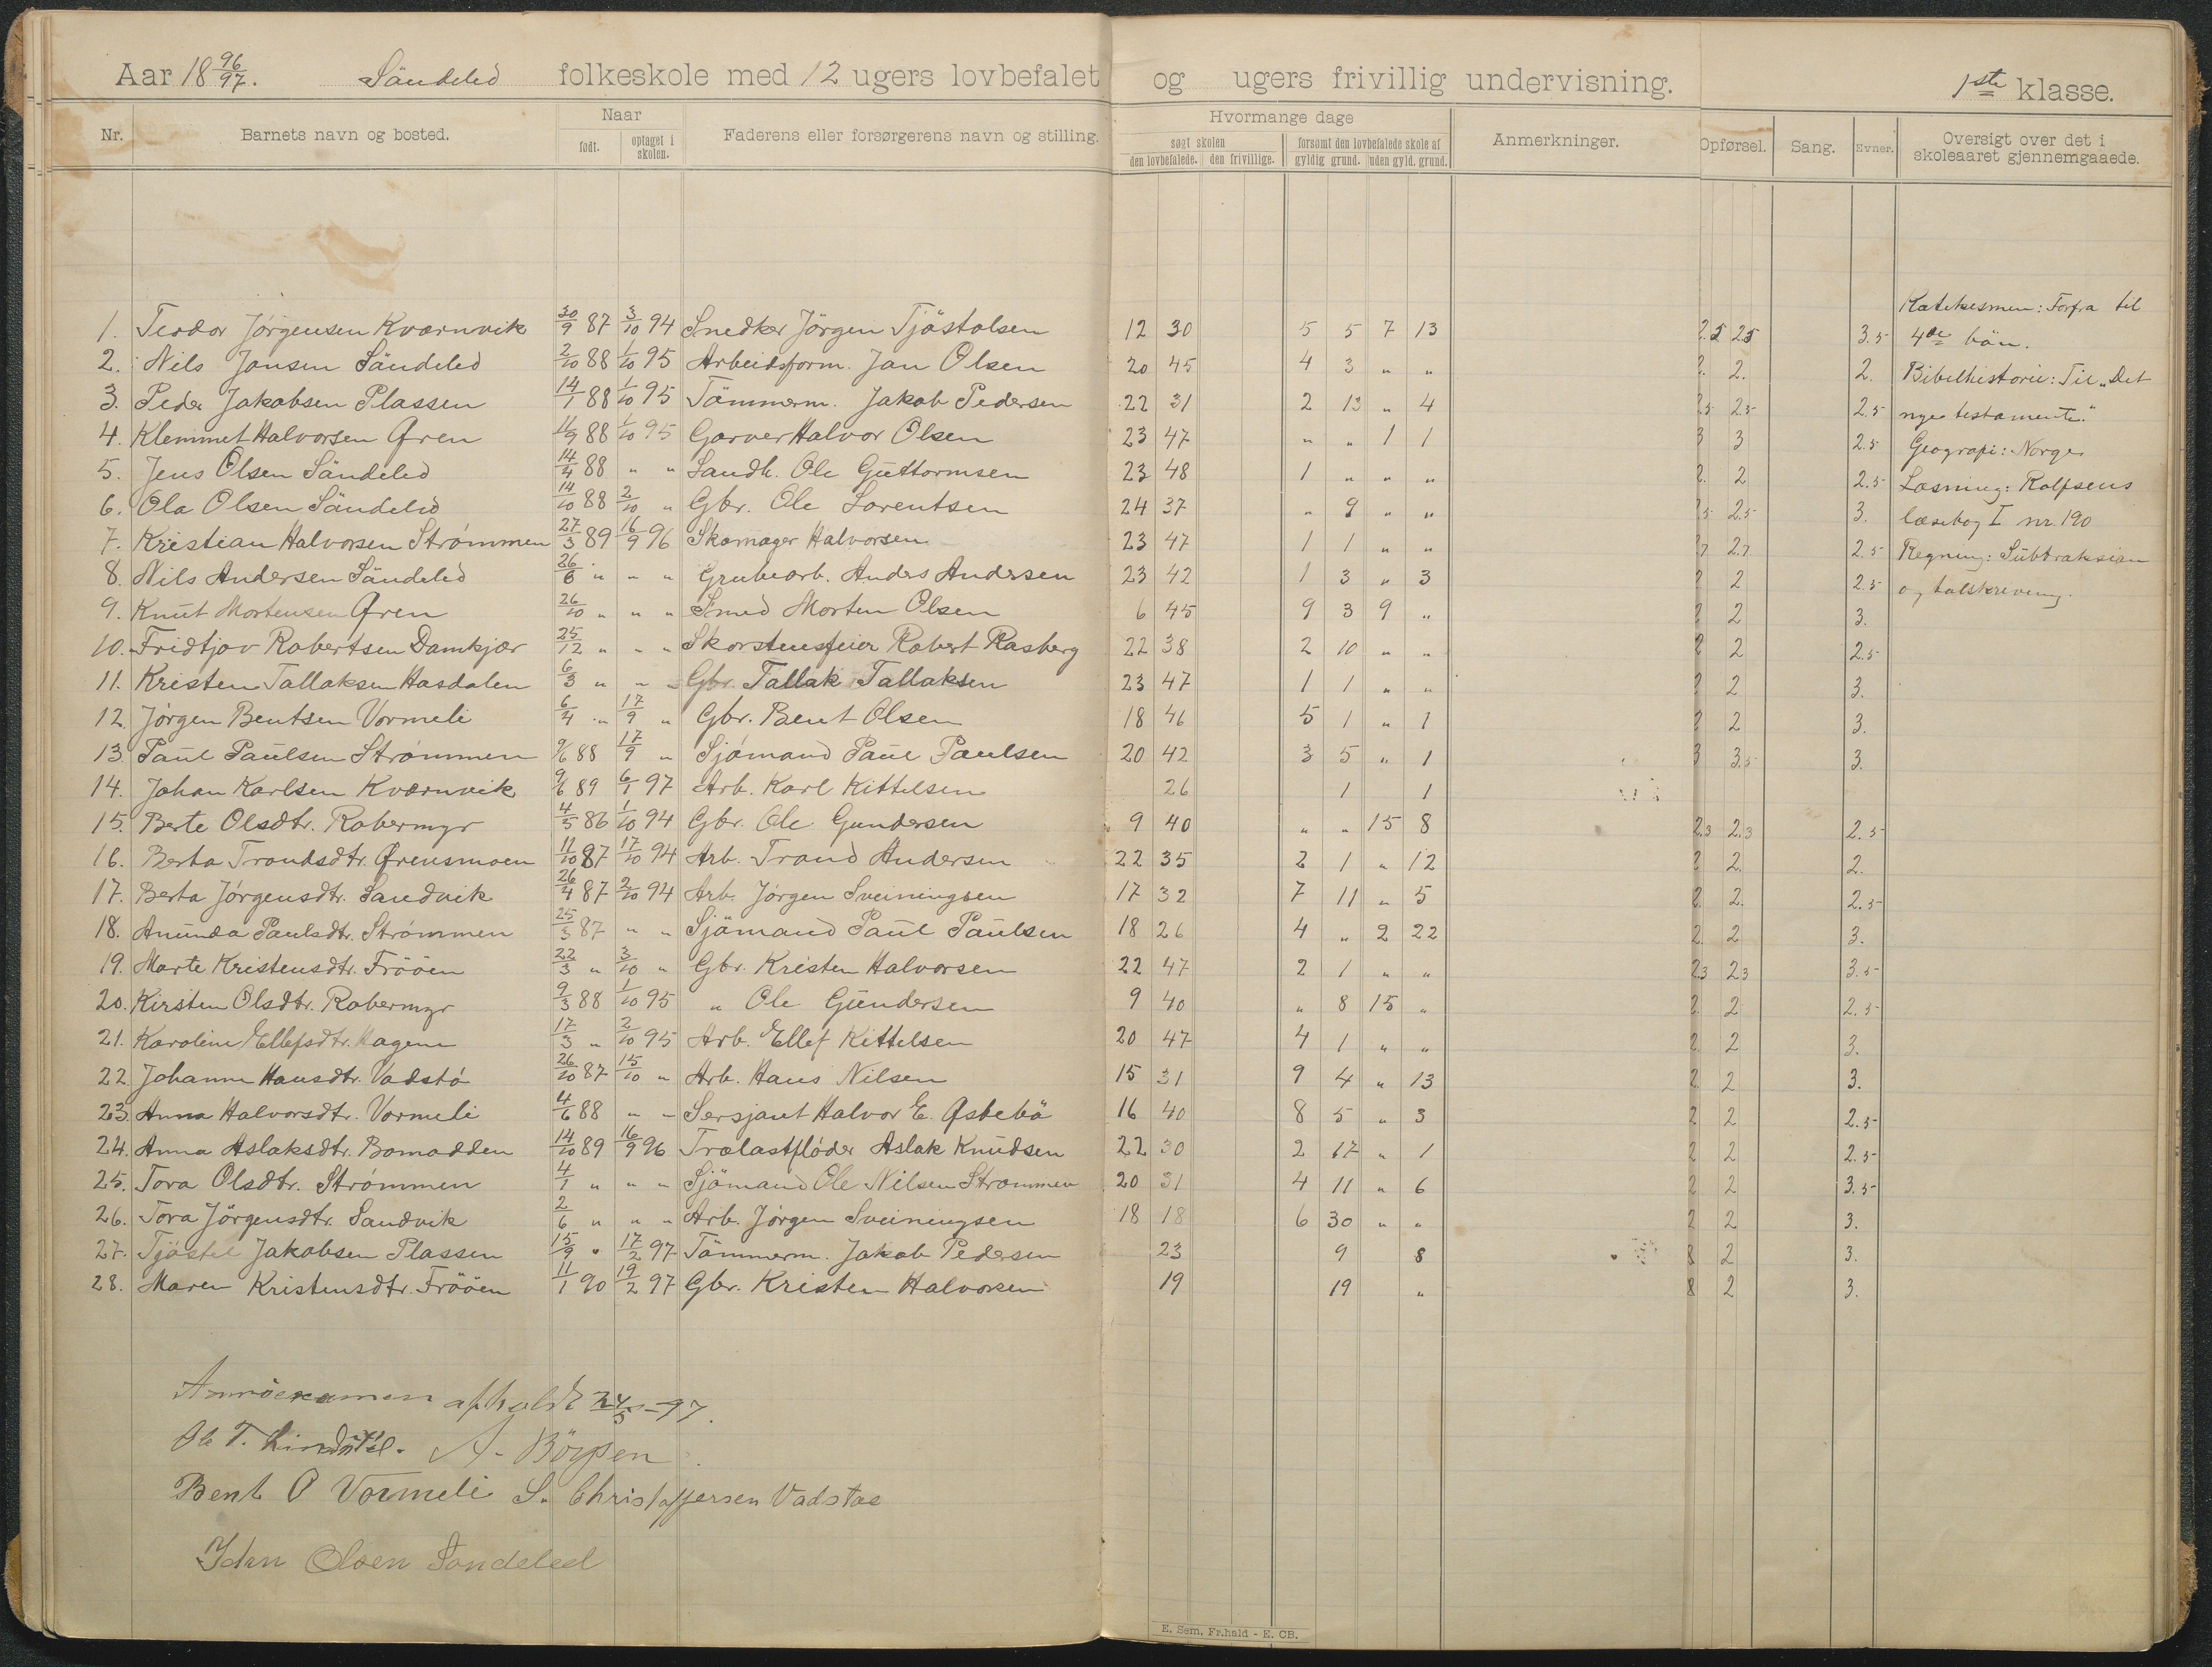 Aar 18 96/97. Söndeled folkeskole med 12 ugers lovbefalet og ugers frivillig undervisning. 1ste klasse.
Nr. Barnets navn og bosted. Naar født. optaget i skolen. Faderens eller forsørgerens navn og stilling. Hvormange dage søgt skolen den lovbefalede. den frivillige. forsømt den lovbefalede skole af gyldig grund. uden gyld. grund. Anmerkninger. Opførsel. Sang. Evner. Oversigt over det i skoleaaret gjennemgaaede.
1. Teodor Jørgensen Kværnvik 30/9 87 3/10 94 Snedker Jörgen Tjöstolsen 12 30 5 5 7 13 2.5 2.5 3.5
2. Nils Jansen Söndeled 2/10 88 1/10 95 Arbeidsform. Jan Olsen 20 45 4 3 " " 2. 2. 2.
3. Peder Jakobsen Plassen 14/1 88 1/10 95 Tömmerm. Jakob Pedersen 22 31 2 13 " 4 2.5 2.5
4. Klemmet Halvorsen Øren 11/9 88 1/10 95 Garver Halvor Olsen 23 47 " " 1 1 3 3 2.5
5. Jens Olsen Söndeled 14/4 88 " " Landh. Ole Guttormsen 23 48 1 " " " 2. 2 2.5
6. Ola Olsen Söndeled 14/10 88 2/10 " Gbr. Ole Lorentsen 24 37 " 9 " " 2.5 3.
7. Kristian Halvorsen Strømmen 27/3 89 16/9 96 Skomager Halvorsen 23 47 1 1 " " 2.7 2.5
8. Nils Andersen Söndeled 26/6 " " " Grubearb. Anders Andersen 23 42 1 3 " 3 2 2 2.5
9. Knut Mortensen Øren 26/10 " " " Smed Morten Olsen 6 45 9 3 9 " 2 2 3.
10. Fridtjov Robertsen Damkjær 25/12 " " " Skorstensfeier Robert Rasberg 22 38 2 10 " " 2 2 2.5
11. Kristen Tallaksen Hasdalen 6/3 " " " Gbr. Tallak Tallaksen 23 47 1 1 " " 2 2 3.
12. Jörgen Bentsen Vormeli 6/4 " 17/9 " Gbr. Bent Olsen 18 46 5 1 " 1 2 2 3.
13. Paul Paulsen Strømmen 9/6 88 17/9 " Sjömand Paul Paulsen 20 42 3 5 " 1 3 3.5 3.
14. Johan Karlsen Kværnvik 9/6 89 6/1 97 Arb. Karl Kittelsen 26 1 1
15. Berte Olsdtr. Robermyr 4/5 86 1/10 94 Gbr. Ole Gundersen 9 40 " " 15 8 2.3 2.3 2.5
16. Berta Trondsdtr. Ørensmoen 11/10 87 17/10 94 Arb. Trond Andersen 22 35 2 1 " 12 2 2. 2.
17. Berta Jörgensdtr. Sandvik 26/4 87 2/10 94 Arb. Jörgen Sveiningsen 17 32 7 11 " 5 2. 2. 2.5
18. Anunda Paulsdtr. Strømmen 25/3 87 " " Sjömand Paul Paulsen 18 26 4 " 2 22 2. 2 3.
19. Marte Kristensdtr. Frööen 22/3 " 3/10 " Gbr. Kristen Halvorsen 22 47 2 1 " " 2.3 2.3 3.5
20. Kirsten Olsdtr. Robermyr 9/3 88 1/10 95 " Ole Gundersen 9 40 " 8 15 " 2 2 2.5
21. Karoline Ellefsdtr. Hagene 17/3 " 2/10 95 Arb. Ellef Kittelsen 20 47 4 1 " " 2. 2 3.
22. Johanne Hansdtr. Vadstö 26/10 87 15/10 " Arb. Hans Nilsen 15 31 9 4 " 13 2. 2 3.
23. Anna Halvorsdtr. Vormeli 4/6 88 " " Sersjant Halvor E. Øsbebö 16 40 8 5 " 3 2 2 2.5
24. Anna Aslaksdtr. Bomodden 14/10 89 16/9 96 Trælastfløder Aslak Knudsen 22 30 2 17 " 1 2 2 2.5
25. Tora Olsdtr. Strømmen 4/1 " " " Sjömand Ole Nilsen Strømmen 20 31 4 11 " 6 2 2 3.5
26. Tora Jörgensdtr. Sandvik 2/6 " " " Arb. Jörgen Sveiningsen 18 18 6 30 " " 2 2 3.
27. Tjöstel Jakobsen Plassen 15/9 " 17/2 97 Tömmerm. Jakob Pedersen 23 9 8 2 3.
28. Maren Kristensdtr. Frööen 11/1 90 19/2 97 Gbr. Kristen Halvorsen 19 19 " 2 3.
Katekesmen: Forfra til
4de bön.
Bibelhistorie: Til „Det
nye testamente."
Geografi: Norge
Læsning: Rolfsens
læsebog I nr. 190
Regning: Subtraksion
og talskrevning.
afholdt 24/3-97.
Ole T. Lindstöl. A. Börsen
Bent O Vormeli S. Christoffersen Vadstøe
Olsen Sondeled
E. Sem, Fr.hald - E. CB.